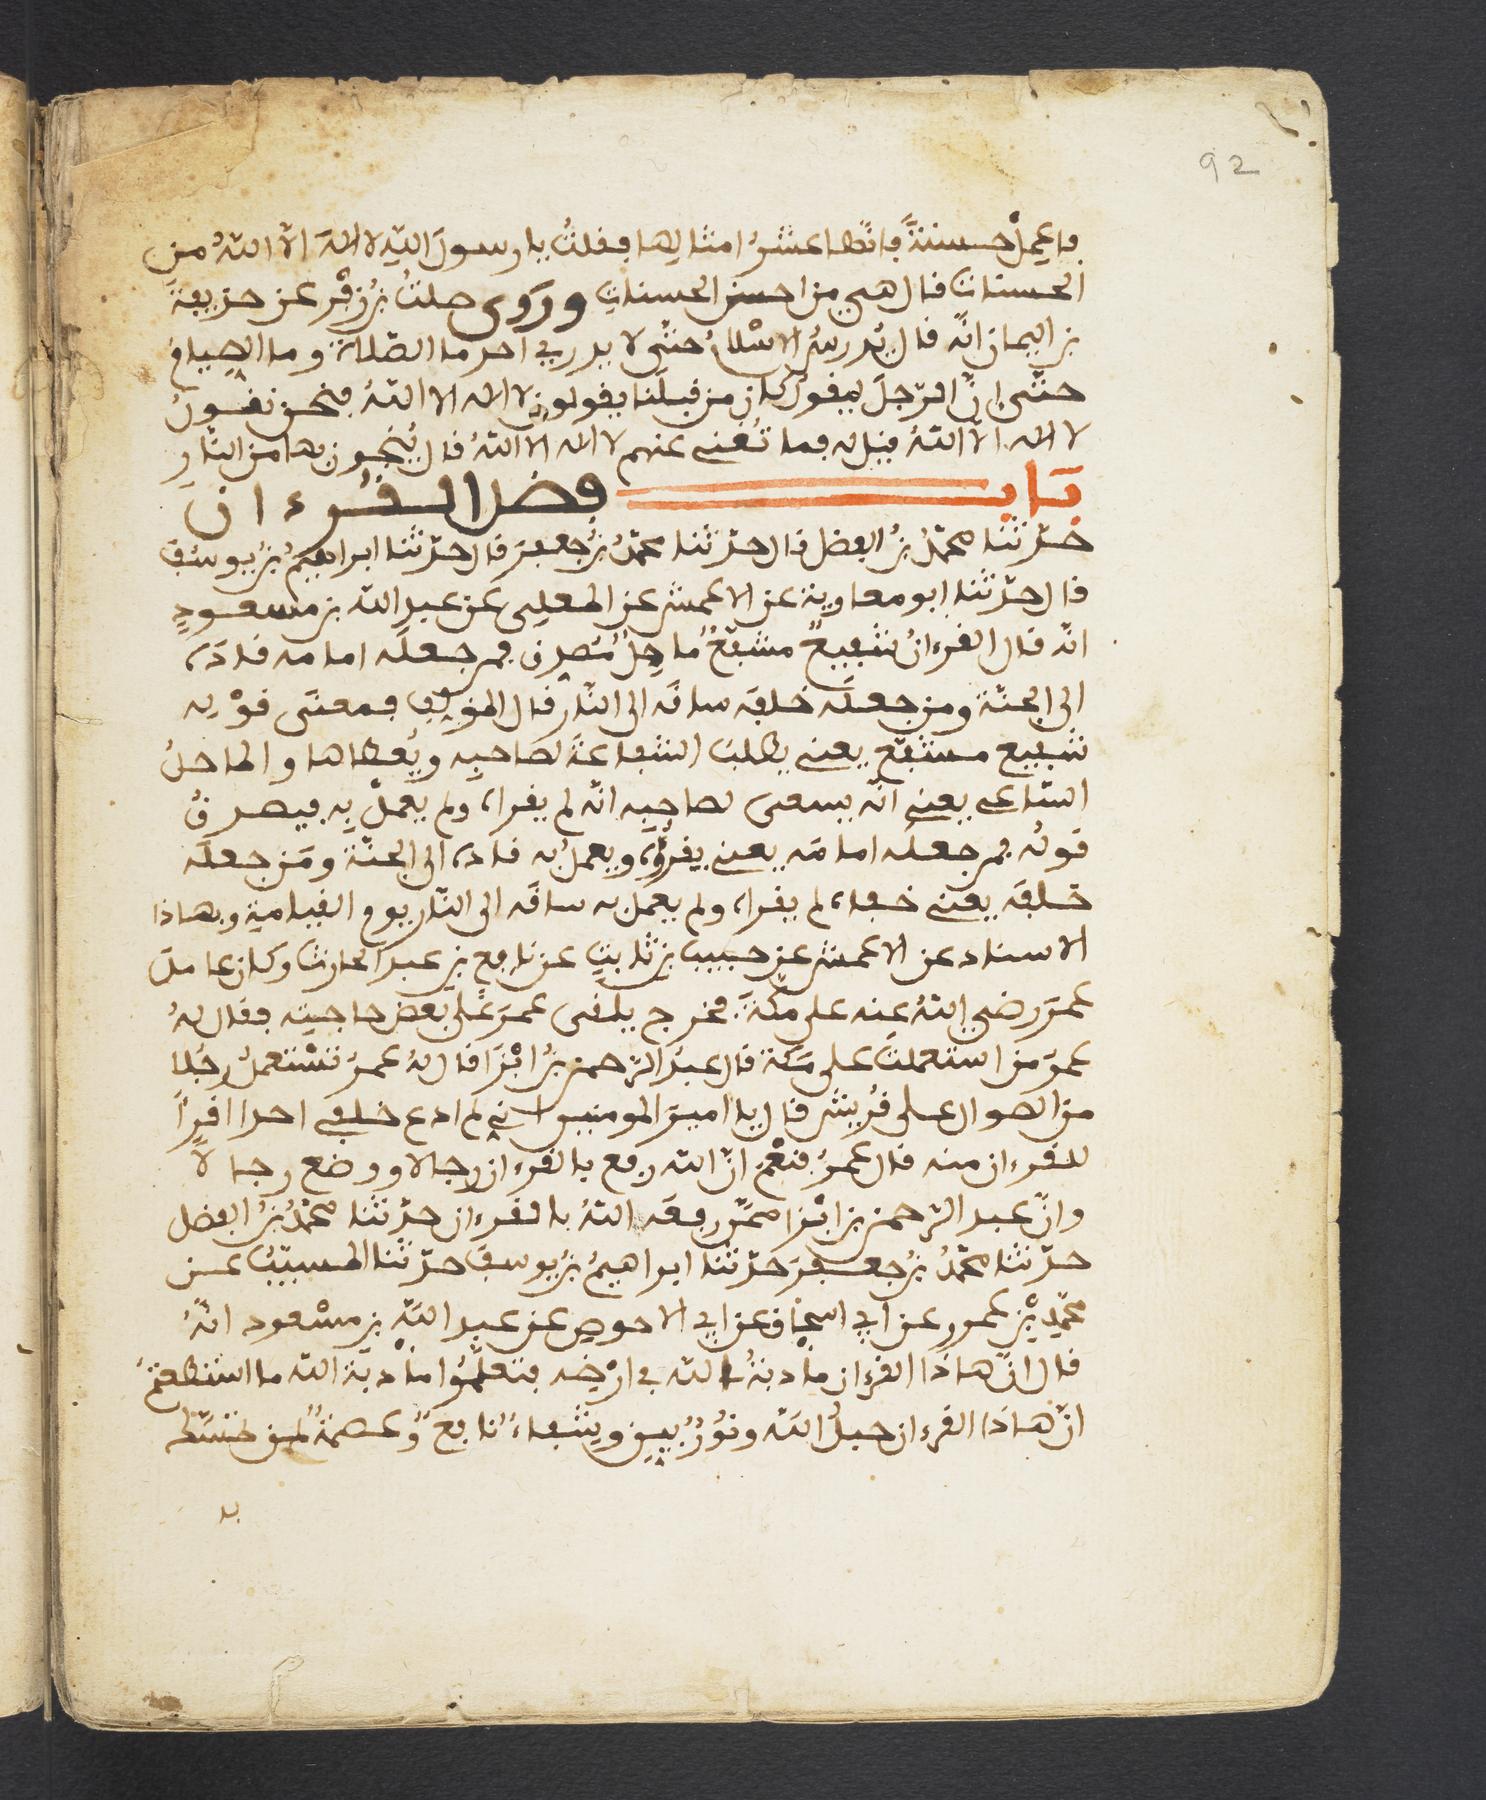 92
فاعمل حسنةً فانّها عشرُ امثالِها فقلتُ يا رسولَ اللّهِ لا الهَ الّا اللّهُ من
الحسنات قال هي من احسن الحسناتِ وروى صلتُ بنُ زفر عن حذيفة
بن اليمان انّه قال يُدرسُ الاسْلامُ حتّى لا يدري احد ما الصّلاة وما الصيام
حتّى إنّ الرّجلَ ليقولُ كان من قبلَنا يقولون لا اله الا اللّهُ فنحن نقولُ
لا اله الّا اللّهُ قيل له فما تُغني عنهم لا اله الا اللّهُ قال يُنْجون بها من النّارِ
بَاب فضل القرءان
حدّثنا محمّدُ بنُ الفضل قال حدّثنا محمّدُ بنُ جعفرَ قال حدّثنا ابراهيمُ بنُ يوسُفَ
قال حدّثنا ابو معاوية عن الاعمش عن المعلى عن عبدِ اللّه بن مسعودٍ
انّه قال القرءانُ شفيعٌ مشفّعٌ ماحِلٌ مُصدق فمن جعلَه امامه قادَه
الى الجنّة ومن جعلَه خلفَه ساقَه الى النّارِ قال المؤلف فمعنَى قوْلِه
شفيع مشفّع يعني يطلبُ الشفاعةَ لصاحبِه ويُعطاها والماحلُ
السّاعي يعني انّه يسعى لصاحِبِه انّه لم يقراه ولم يعملْ بِه فيصدقُ
قولُه فمن جعلَه امامَه يعني يقرؤُه ويعملُ به قاده الى الجنّة ومَن جعلَه
خلفَه يعني خفاه لم يقراه ولم يعمل به ساقَه الى النّار يوم القيامةِ وبهاذا
الاسناد عن الاعمش عن حبيب بن ثابتٍ عن نافعِ بنِ عبد الحارث وكان عاملَ
عمرَ رضي اللّهُ عنه على مكّةَ فخرج يلقى عمرَ على بعض حاجتِه فقال لهُ
عمرَ من استعملتَ على مَكّة قال عبدُ الرّحمن بنُ ابْزَا قال لهُ عمرُ تسْتعملُ رجُلا
من الموال على قُريش قال يا اميرَ المومنين اني لم ادع خلفي احدا اقرأ
للقرءان منه قال عمرُ فنعْمَ انّ اللّه رفع بالقرءان رجالا ووضع رجالا
وانّ عبد الرّحمن بن ابْزا ممّن رفعَه اللّهُ بالقرءان حدّثنا محمّدُ بنُ الفضل
حدّثنا محمّدُ بنُ جعفرَ حدّثنا ابراهيمُ بنُ يوسفَ حدّثنا المسيّبُ عن
محمّدِ بْنِ عمرو عن ابي اسحاق عن ابي الاحوصِ عن عبدِ اللّهِ بن مسْعود انّهُ
قال انّ هاذا القرءان مأدبةُ اللّه في ارْضِه فتعلّمُوا مأدبة اللّه ما استطعتم
انّ هاذا القرءان حبلُ اللّه ونُورٌ بين وشفاءٌ نافعٌ وعصمةٌ لمن